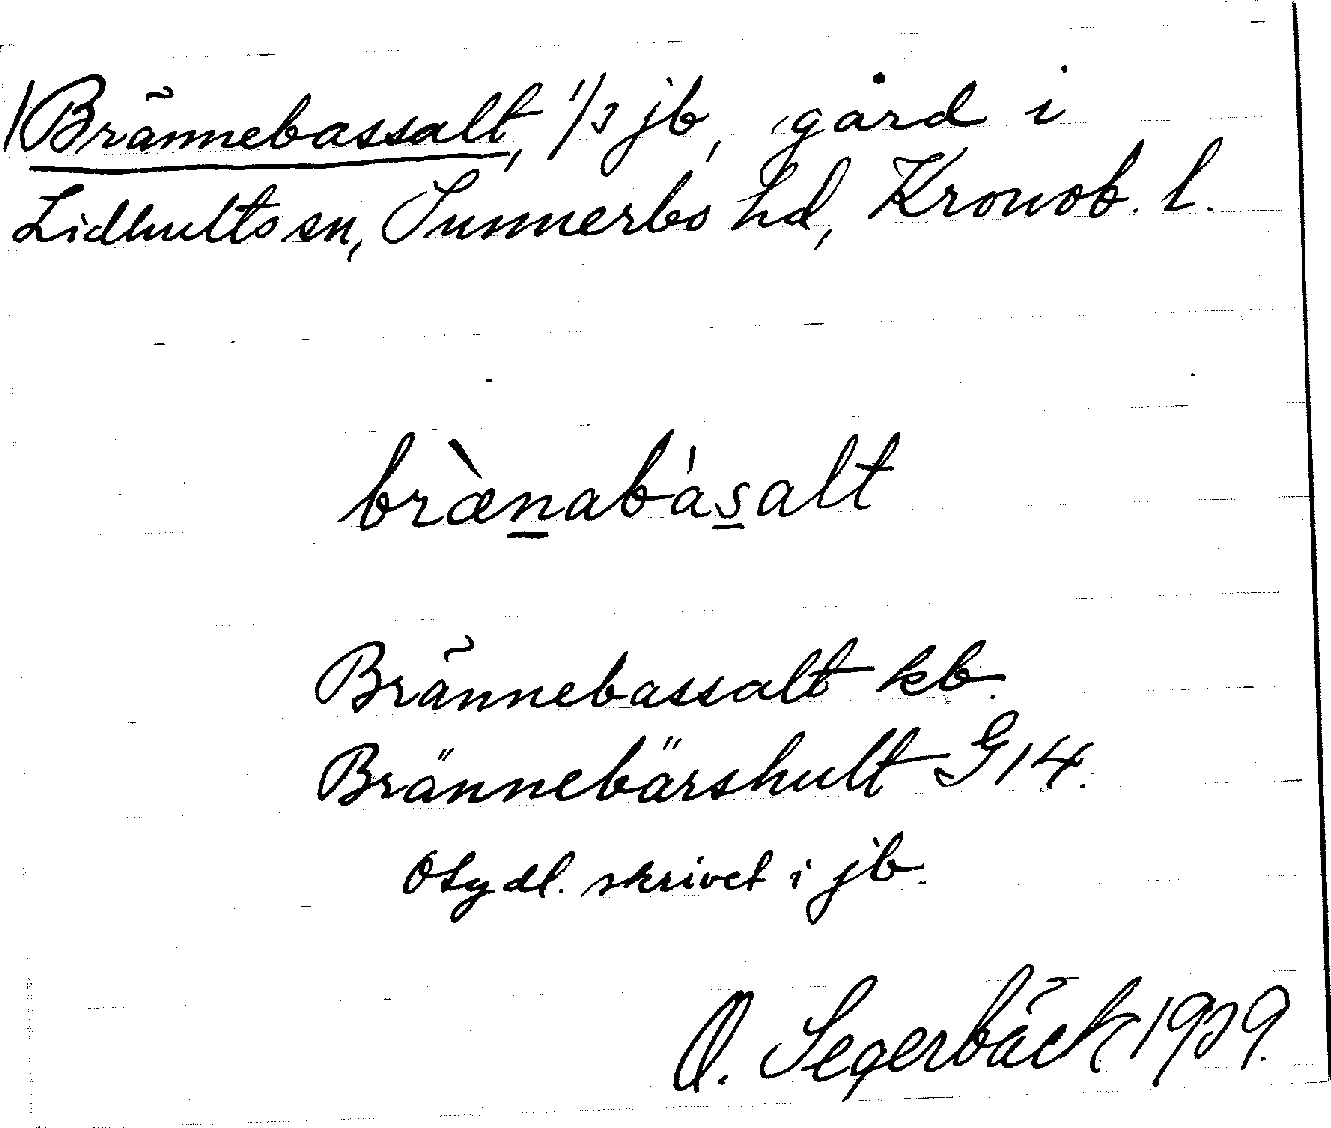 Brännebassalt, 1/3 jb, gård i
Lidhults sn, Sunnerbo hd, Kronob. l.
bræ̀na̲bása̲lt
Brännebassalt kb.
Brännebärshult G 14.
Otydl. skrivet i jb.
O. Segerbäck 1939.